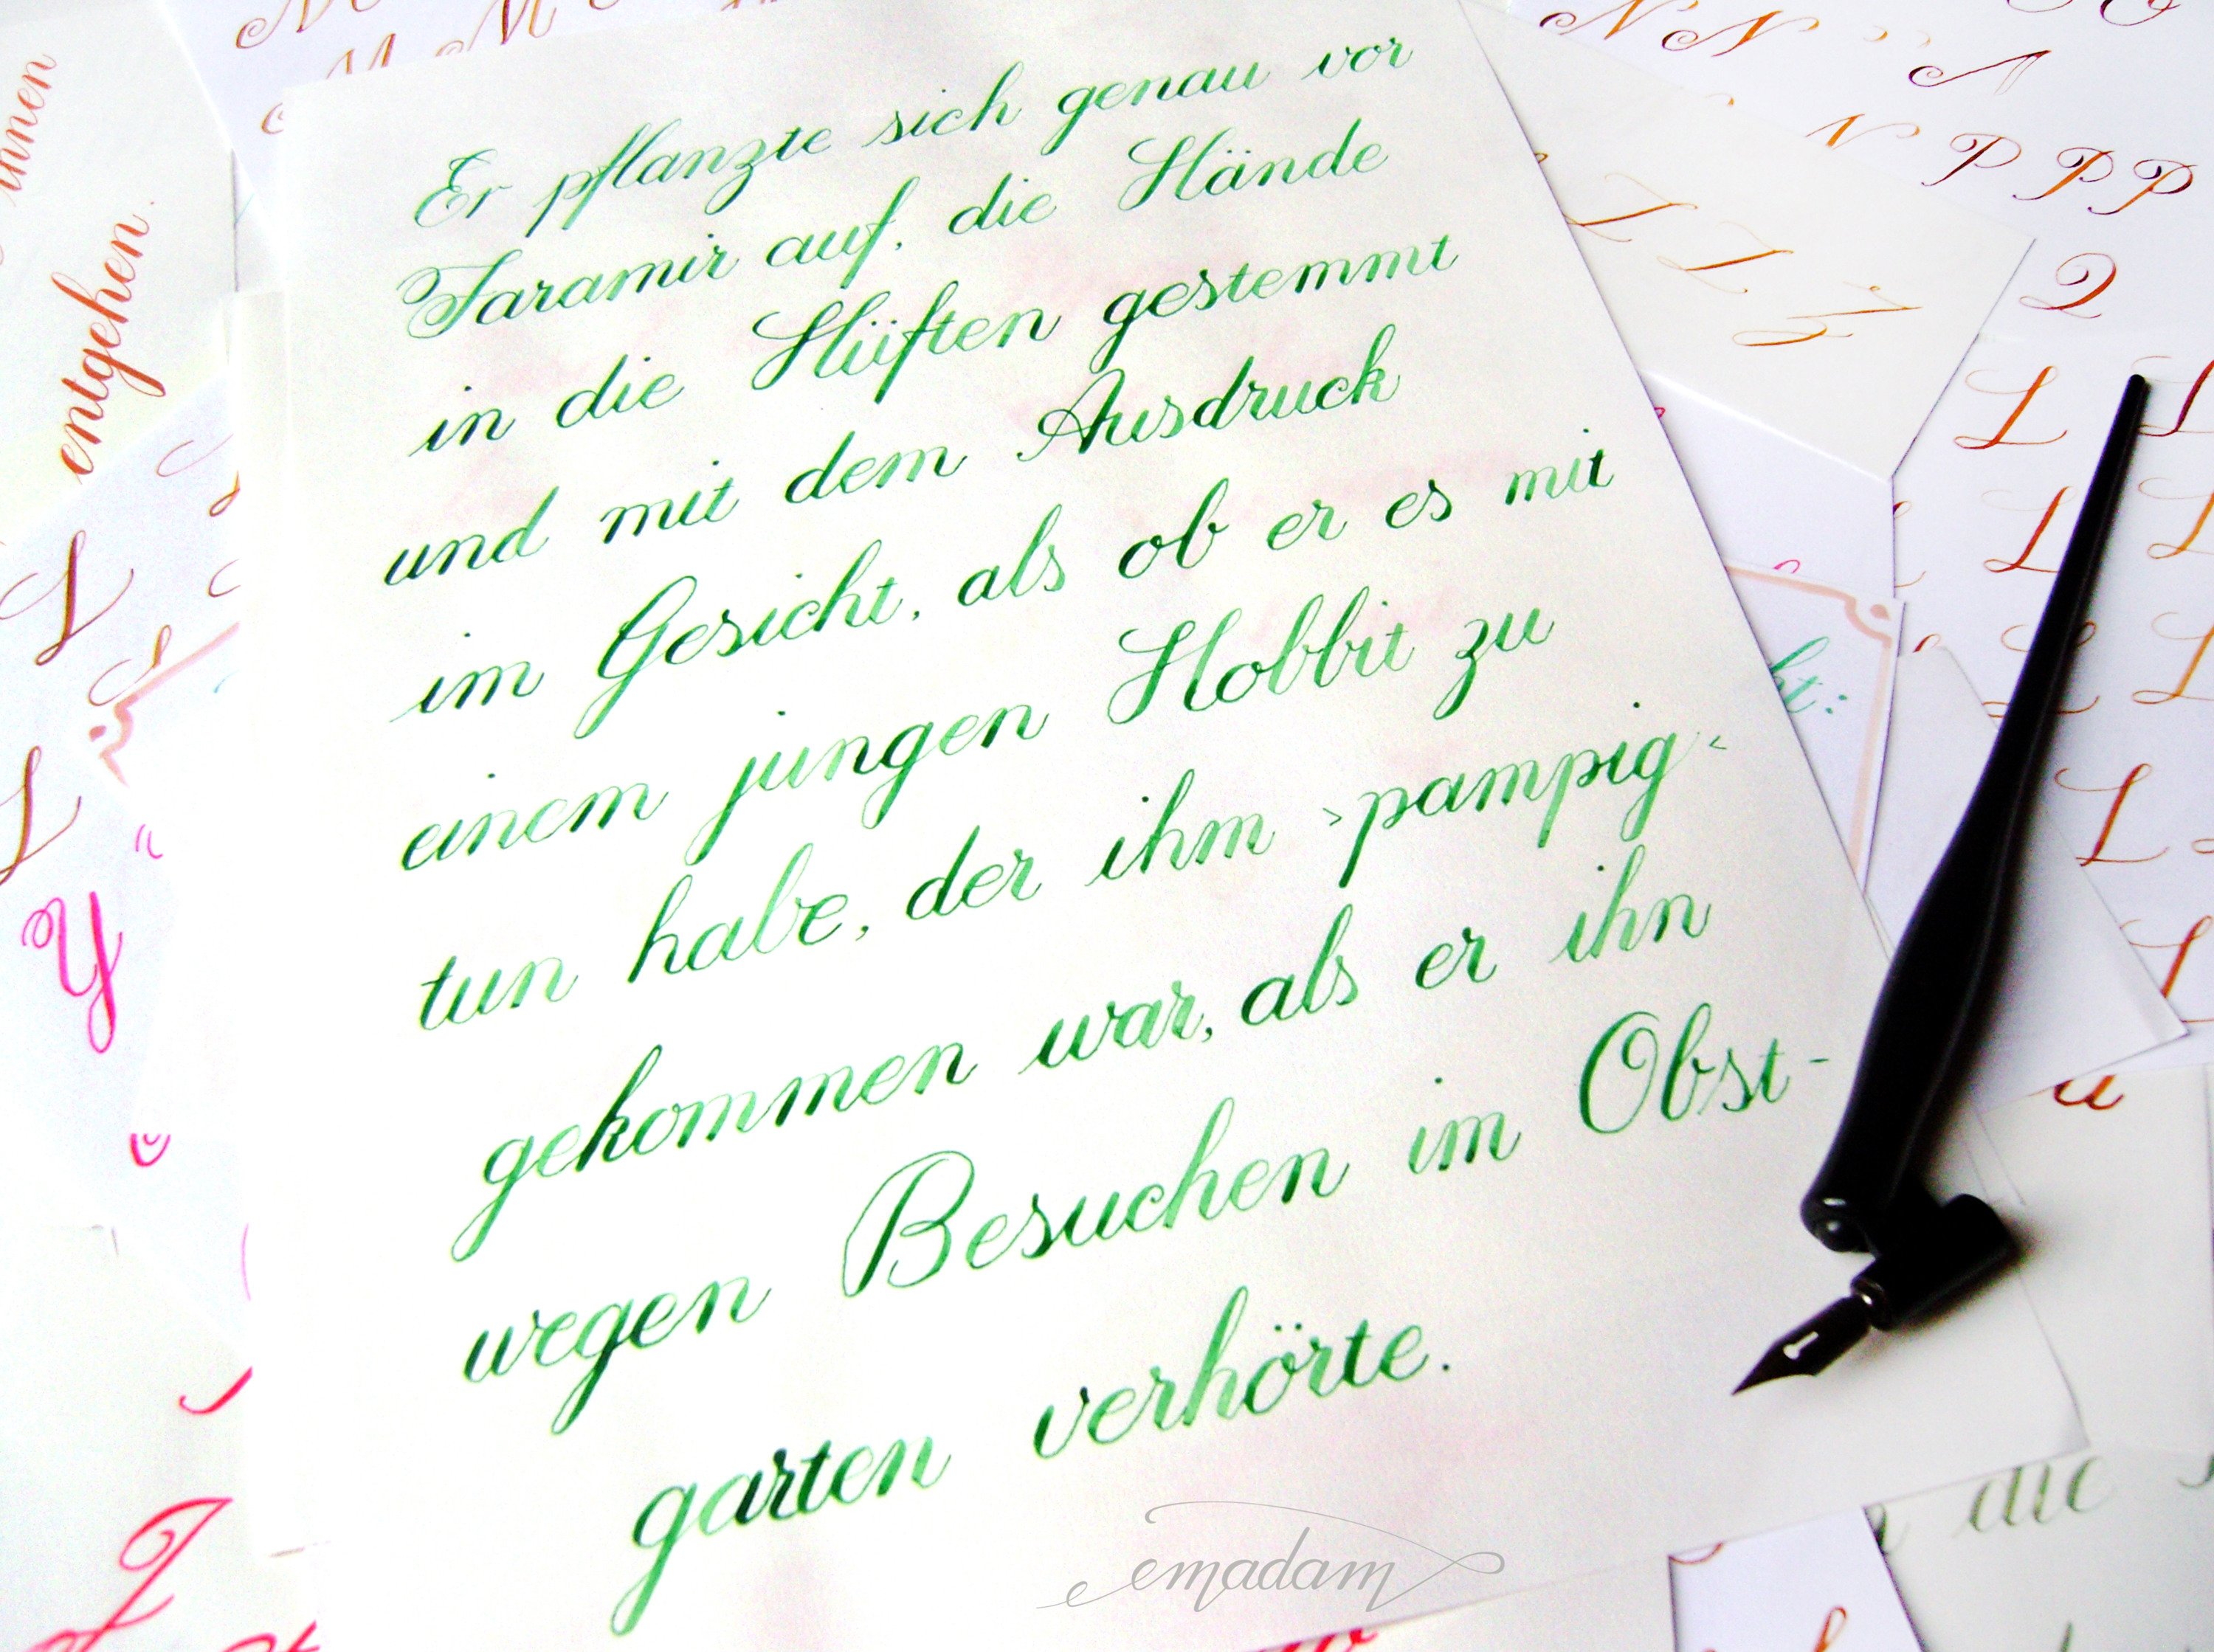 Er pflanzte sich genau vor
Faramir auf, die Hände
in die Hüften gestemmt
und mit dem Ausdruck
im Gesicht, als ob er es mit
einem jungen Hobbit zu
tun habe, der ihm ›pampig‹
gekommen war, als er ihn
wegen Besuchen im Obst-
garten verhörte.
emadam
entgehen.
N N A
N P P P
L
L
Y
die